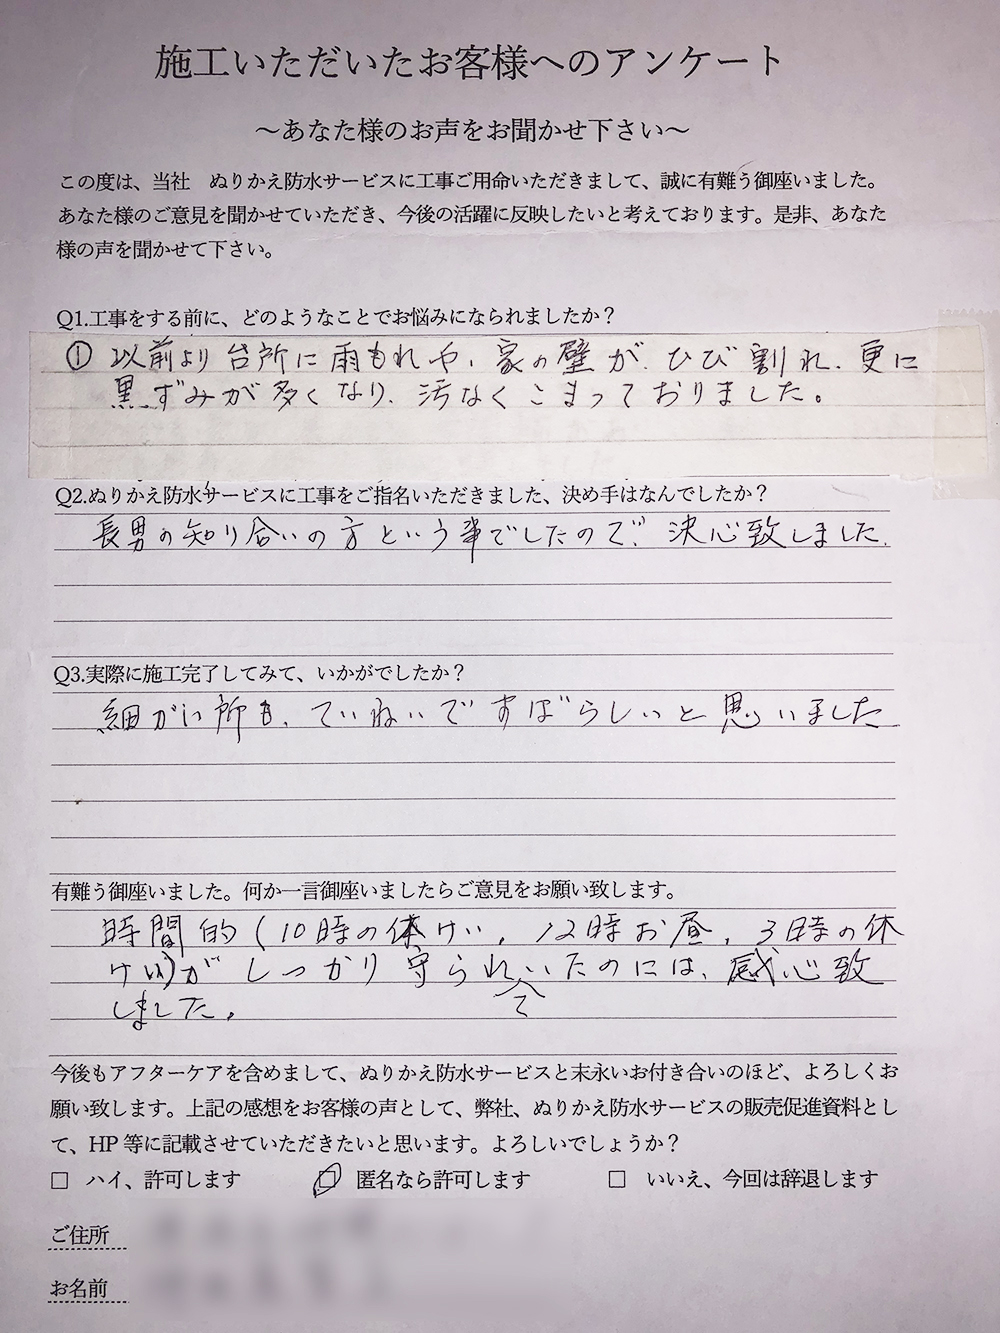 施工いただいたお客様へのアンケート
～あなた様のお声をお聞かせ下さい～
この度は、当社　ぬりかえ防水サービスに工事ご用命いただきまして、誠に有難う御座いました。
あなた様のご意見を聞かせていただき、今後の活躍に反映したいと考えております。是非、あなた
様の声を聞かせて下さい。
Q1.工事をする前に、どのようなことでお悩みになられましたか？
① 以前より台所に雨もれや、家の壁が、ひび割れ、更に
黒ずみが多くなり、汚なくこまっておりました。
Q2.ぬりかえ防水サービスに工事をご指名いただきました、決め手はなんでしたか？
長男の知り合いの方という事でしたので、決心致しました、
Q3.実際に施工完了してみて、いかがでしたか？
細かい所も、ていねいですばらしいと思いました
有難う御座いました。何か一言御座いましたらご意見をお願い致します。
時間的（10時の休けい、12時お昼、3時の休
けい）がしっかり守られていたのには、感心致
しました。
今後もアフターケアを含めまして、ぬりかえ防水サービスと末永いお付き合いのほど、よろしくお
願い致します。上記の感想をお客様の声として、弊社、ぬりかえ防水サービスの販売促進資料とし
て、HP 等に記載させていただきたいと思います。よろしいでしょうか？
□ ハイ、許可します　□ 匿名なら許可します　□ いいえ、今回は辞退します
ご住所
お名前